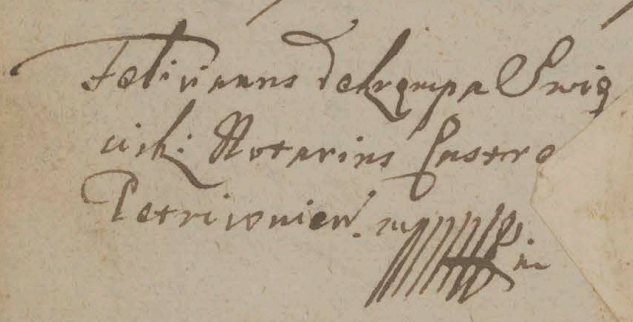 Felicianus de Krępa Świę
cicki Notarius Castre
Petricouien. mp